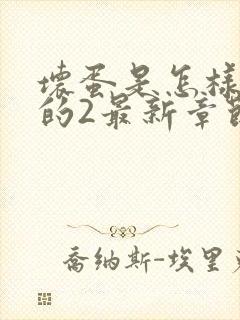 壞蛋是怎樣
的2最新章節
喬納斯-埃里克